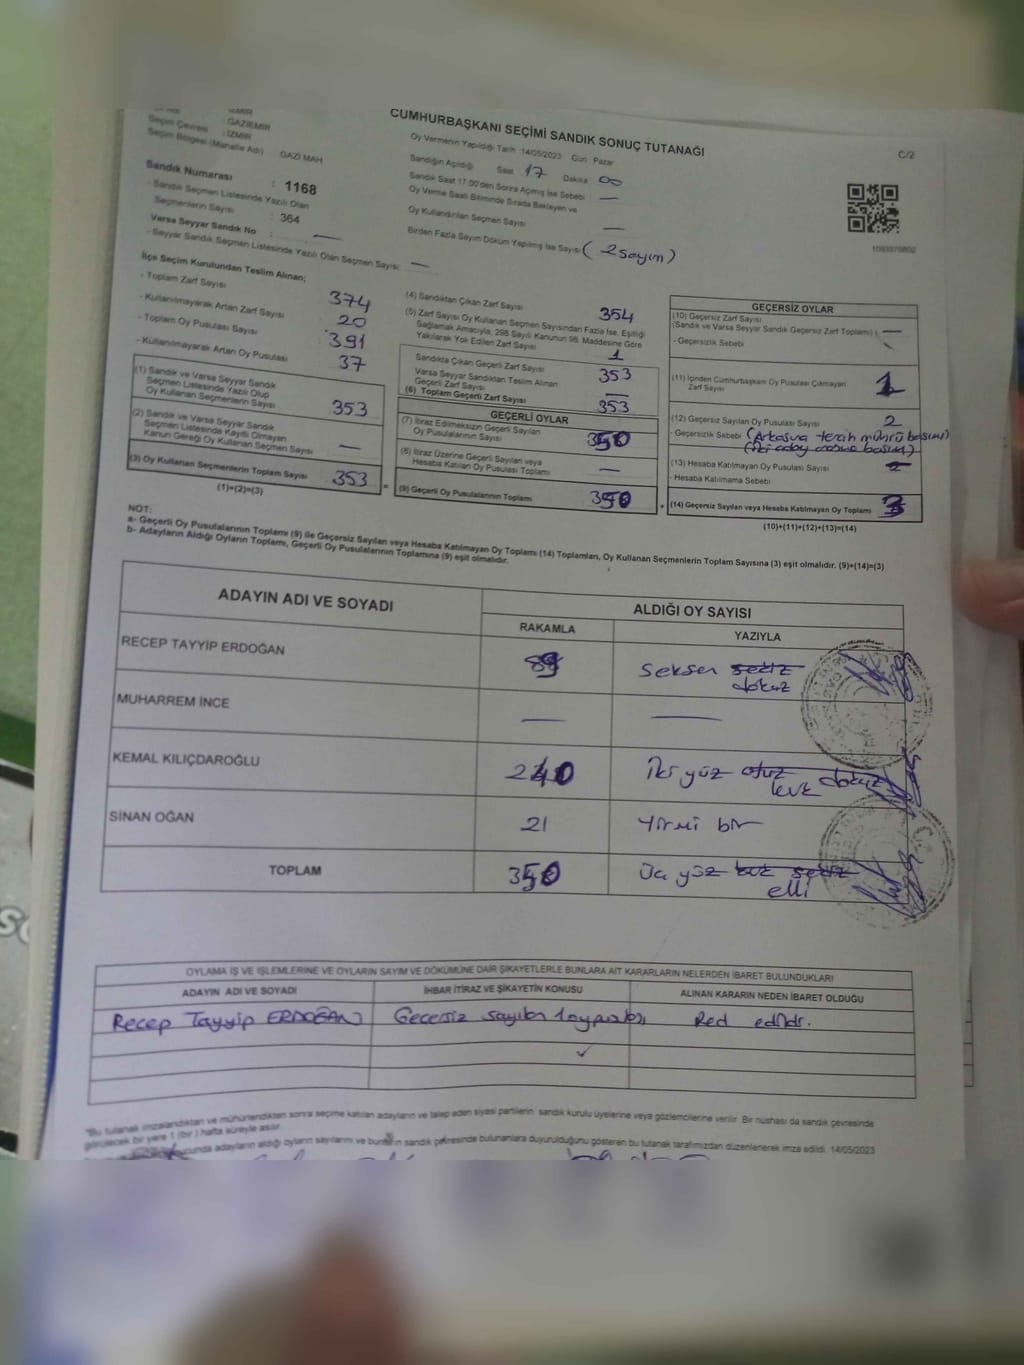 CUMHURBAŞKANI SEÇİMİ SANDIK SONUÇ TUTANAĞI
C/2
: İZMİR
: GAZİEMİR
Seçim Çevresi : İZMİR
Seçim Bölgesi (Mahalle Adı) GAZİ MAH
Oy Vermenin Yapıldığı Tarih 14/05/2023 Gün Pazar
Sandığın Açıldığı Saat 17 Dakika 00
Sandık Saat 17.00'den Sonra Açılmış İse Sebebi —
Oy Verme Saati Bitiminde Sırada Bekleyen ve
Oy Kullandırılan Seçmen Sayısı —
Birden Fazla Sayım Döküm Yapılmış İse Sayısı (2 sayım)
Sandık Numarası : 1168
- Sandık Seçmen Listesinde Yazılı Olan
Seçmenlerin Sayısı : 364
Varsa Seyyar Sandık No : —
- Seyyar Sandık Seçmen Listesinde Yazılı Olan Seçmen Sayısı: —
İlçe Seçim Kurulundan Teslim Alınan;
- Toplam Zarf Sayısı 374
- Kullanılmayarak Artan Zarf Sayısı 20
- Toplam Oy Pusulası Sayısı 391
- Kullanılmayarak Artan Oy Pusulası 37
(1) Sandık ve Varsa Seyyar Sandık
Seçmen Listesinde Yazılı Olup
Oy Kullanan Seçmenlerin Sayısı 353
(2) Sandık ve Varsa Seyyar Sandık
Seçmen Listesinde Kayıtlı Olmayan
Kanun Gereği Oy Kullanan Seçmen Sayısı —
(3) Oy Kullanan Seçmenlerin Toplam Sayısı 353
(1)+(2)=(3)
(4) Sandıktan Çıkan Zarf Sayısı 354
(5) Zarf Sayısı Oy Kullanan Seçmen Sayısından Fazla İse, Eşitliği
Sağlamak Amacıyla, 298 Sayılı Kanunun 98. Maddesine Göre
Yakılarak Yok Edilen Zarf Sayısı 1
Sandıkta Çıkan Geçerli Zarf Sayısı 353
Varsa Seyyar Sandıktan Teslim Alınan
Geçerli Zarf Sayısı —
(6) Toplam Geçerli Zarf Sayısı 353
GEÇERLİ OYLAR
(7) İtiraz Edilmeksizin Geçerli Sayılan
Oy Pusulalarının Sayısı 350
(8) İtiraz Üzerine Geçerli Sayılan veya
Hesaba Katılan Oy Pusulası Toplamı —
(9) Geçerli Oy Pusulalarının Toplamı 350
GEÇERSİZ OYLAR
(10) Geçersiz Zarf Sayısı
(Sandık ve Varsa Seyyar Sandık Geçersiz Zarf Toplamı) : —
- Geçersizlik Sebebi
(11) İçinden Cumhurbaşkanı Oy Pusulası Çıkmayan
Zarf Sayısı 1
(12) Geçersiz Sayılan Oy Pusulası Sayısı 2
- Geçersizlik Sebebi (Arkasına tercih mührü basımı)
(iki aday basımı)
(13) Hesaba Katılmayan Oy Pusulası Sayısı
- Hesaba Katılmama Sebebi
(14) Geçersiz Sayılan veya Hesaba Katılmayan Oy Toplamı 3
(10)+(11)+(12)+(13)=(14)
NOT:
a- Geçerli Oy Pusulalarının Toplamı (9) ile Geçersiz Sayılan veya Hesaba Katılmayan Oy Toplamı (14) Toplamları, Oy Kullanan Seçmenlerin Toplam Sayısına (3) eşit olmalıdır. (9)+(14)=(3)
b- Adayların Aldığı Oyların Toplamı, Geçerli Oy Pusulalarının Toplamına (9) eşit olmalıdır.
ADAYIN ADI VE SOYADI ALDIĞI OY SAYISI
RAKAMLA YAZIYLA
RECEP TAYYİP ERDOĞAN 89 seksen sekiz dokuz
MUHARREM İNCE — —
KEMAL KILIÇDAROĞLU 240 İki yüz otuz dokuz kırk
SİNAN OĞAN 21 Yirmi bir
TOPLAM 350 Üç yüz kırk sekiz elli
OYLAMA İŞ VE İŞLEMLERİNE VE OYLARIN SAYIM VE DÖKÜMÜNE DAİR ŞİKAYETLERLE BUNLARA AİT KARARLARIN NELERDEN İBARET BULUNDUKLARI
ADAYIN ADI VE SOYADI İHBAR İTİRAZ VE ŞİKAYETİN KONUSU ALINAN KARARIN NEDEN İBARET OLDUĞU
Recep Tayyip ERDOĞAN Geçersiz sayılan 1 oy Red edildi.
"Bu tutanak imzalandıktan ve mühürlendikten sonra seçime katılan adayların ve talep eden siyasi partilerin sandık kurulu üyelerine veya gözlemcilerine verilir. Bir nüshası da sandık çevresinde
görülecek bir yere 1 (bir) hafta süreyle asılır.
adayların aldığı oyların sayılarını ve sandık çevresinde bulunanlara duyurulduğunu gösteren bu tutanak tarafımızdan düzenlenerek imza edildi. 14/05/2023